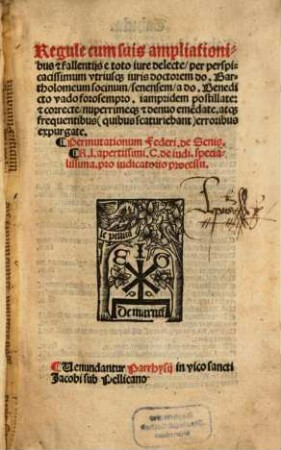 Regule cum suis ampliationi-
bus & fallentijs e toto iure delecte/ per perspi-
cacissimum vtriusq; iuris doctorem do. Bar-
tholomeum socinum/ senensem/ a do. Benedi-
cto vado forosempro. iampridem postillate:
& correcte/ nuperrimeq; & denuo emẽdate. atq;
frequentibus (quibus scaturiebant) erroribus
expurgate.
¶Permutationum Federi. de Senis.
¶R. l. apertissimi. C. de iudi. specia-
lissima. pro iudicatorio processu.
le pellini
E I G
De marnef
¶Uenundantur Parrhysijs in vico sancti
Jacobi sub Pellicano